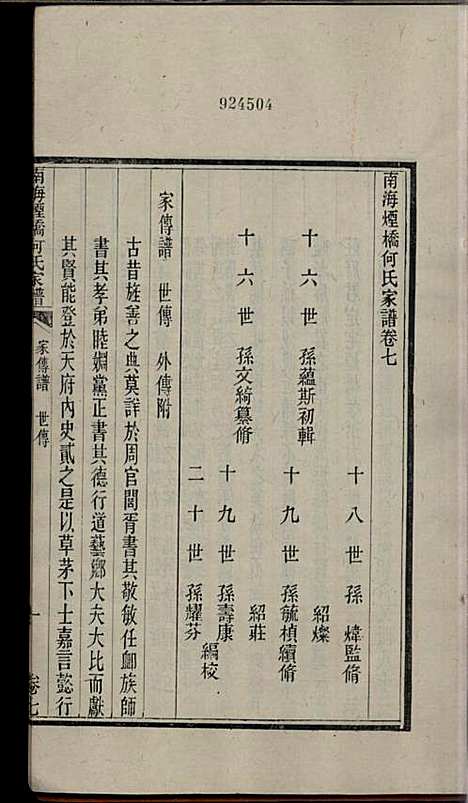 924504
南海煙橋何氏家譜卷七
十八世孫煒監脩
十六世孫蘊斯初輯
紹燦
十九世孫毓楨續脩
十六世孫文綺纂脩
紹莊
十九世孫壽康
編校
二十世孫耀芬
家傳譜 世傳 外傳附
古昔旌善之典莫詳於周官閭胥書其敬敏任卹族師
書其孝弟睦婣黨正書其德行道藝鄉大夫大比而獻
其賢能登於天府內史貳之是以草茅下士嘉言懿行
南海煙橋何氏家譜
家傳譜 世傳
一
卷七